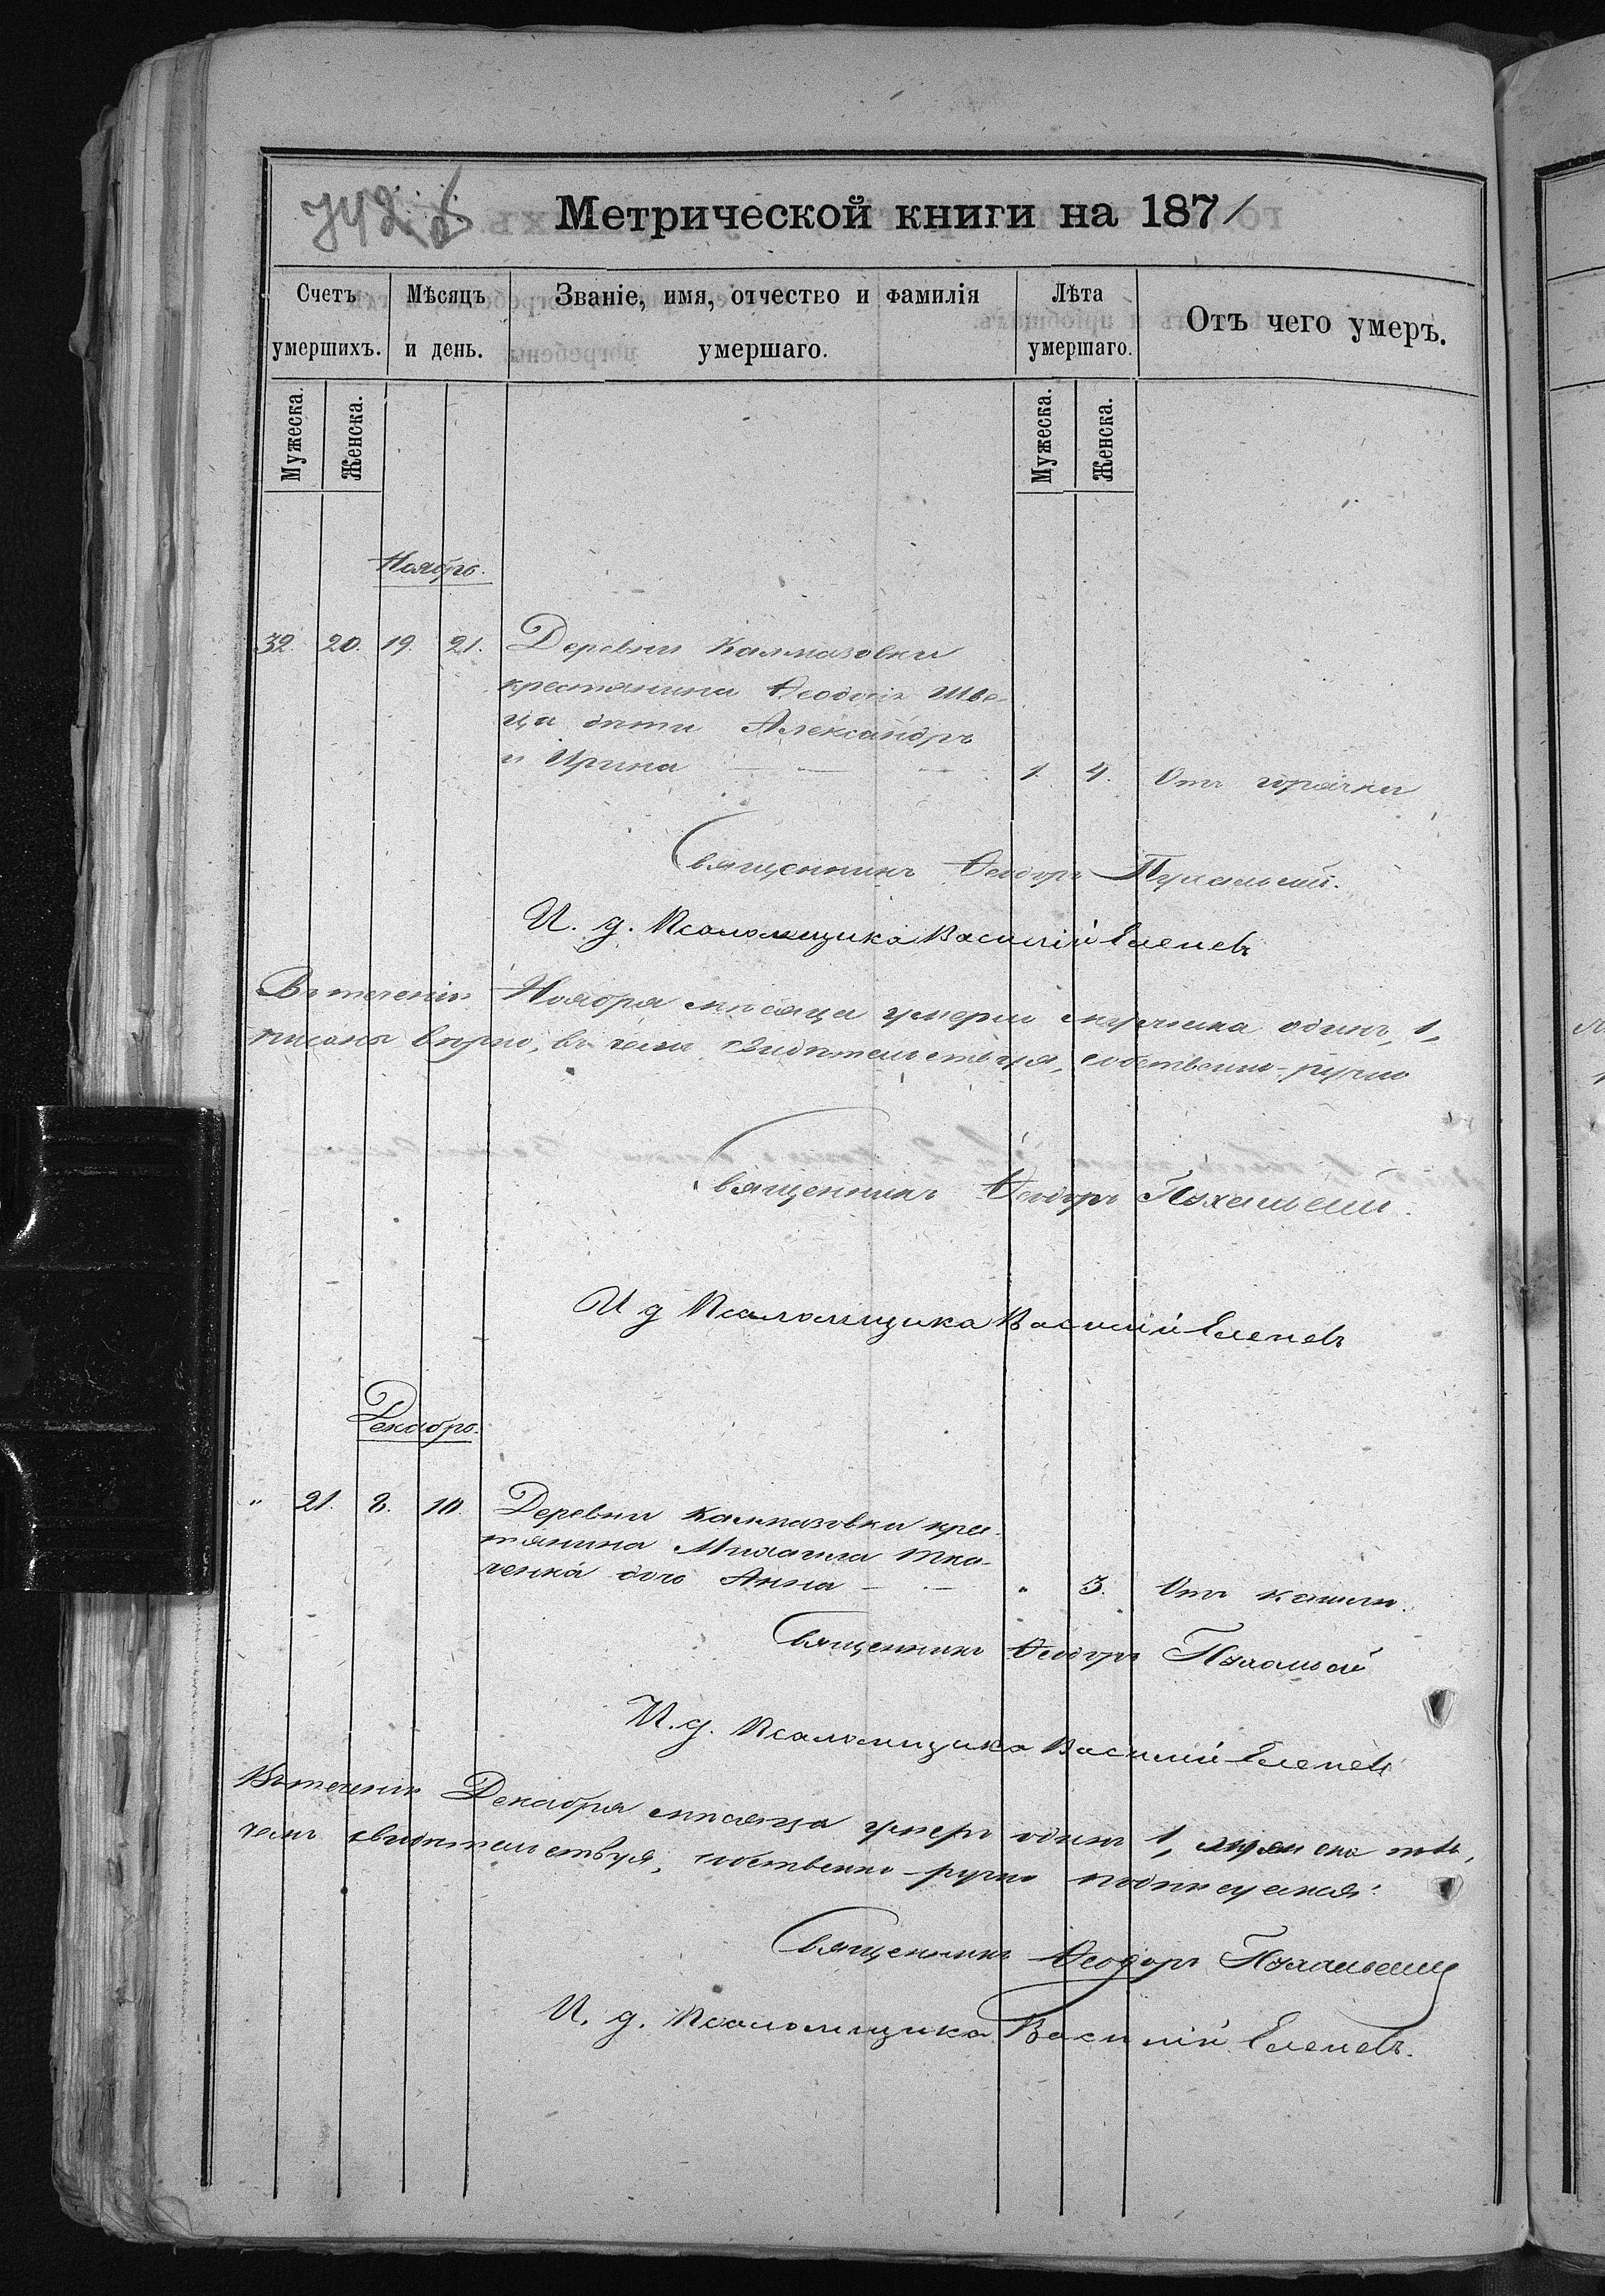 742 об
Метрической книги на 1871
Счетъ умершихъ.
Мѣсяцъ и день.
Званіе, имя, отчество и фамилія умершаго.
Лѣта умершаго.
Отъ чего умеръ.
Мужеска.
Женска.
Мужеска.
Женска.
Ноябрь.
32 20. 19. 21. Деревни Калмазовки
крестянина Ѳеодосія Шве-
ца дѣти Александръ
и Ирина — — — 1. 4. Отъ горячки
Священникъ Ѳеодоръ Пухальскій.
И. д. Псаломщика Василій Еленевъ
Въ теченіи Ноября мѣсяца умерли мужеска одинъ, 1,
писаны вѣрно, въ чемъ свидѣтельствуя, собственно-ручно
Священникъ Ѳеодоръ Пухальскій.
И д Псаломщика Василій Еленевъ
Декабрь.
" 21. 8. 10. Деревни Калмазовки кре-
тянина Михаила Тка-
ченка дочь Анна — — " 3. Отъ кашля.
Священникъ Ѳеодоръ Пухальскій
И. д. Псаломщика Василій Еленевъ
Въ теченіи Декабря мѣсяца умеръ одинъ 1, мужеска
чемъ свидѣтельствуя, собственно-ручно подписуемся:
Священникъ Ѳеодоръ Пухальскій
И. д. Псаломщика Василій Еленевъ.